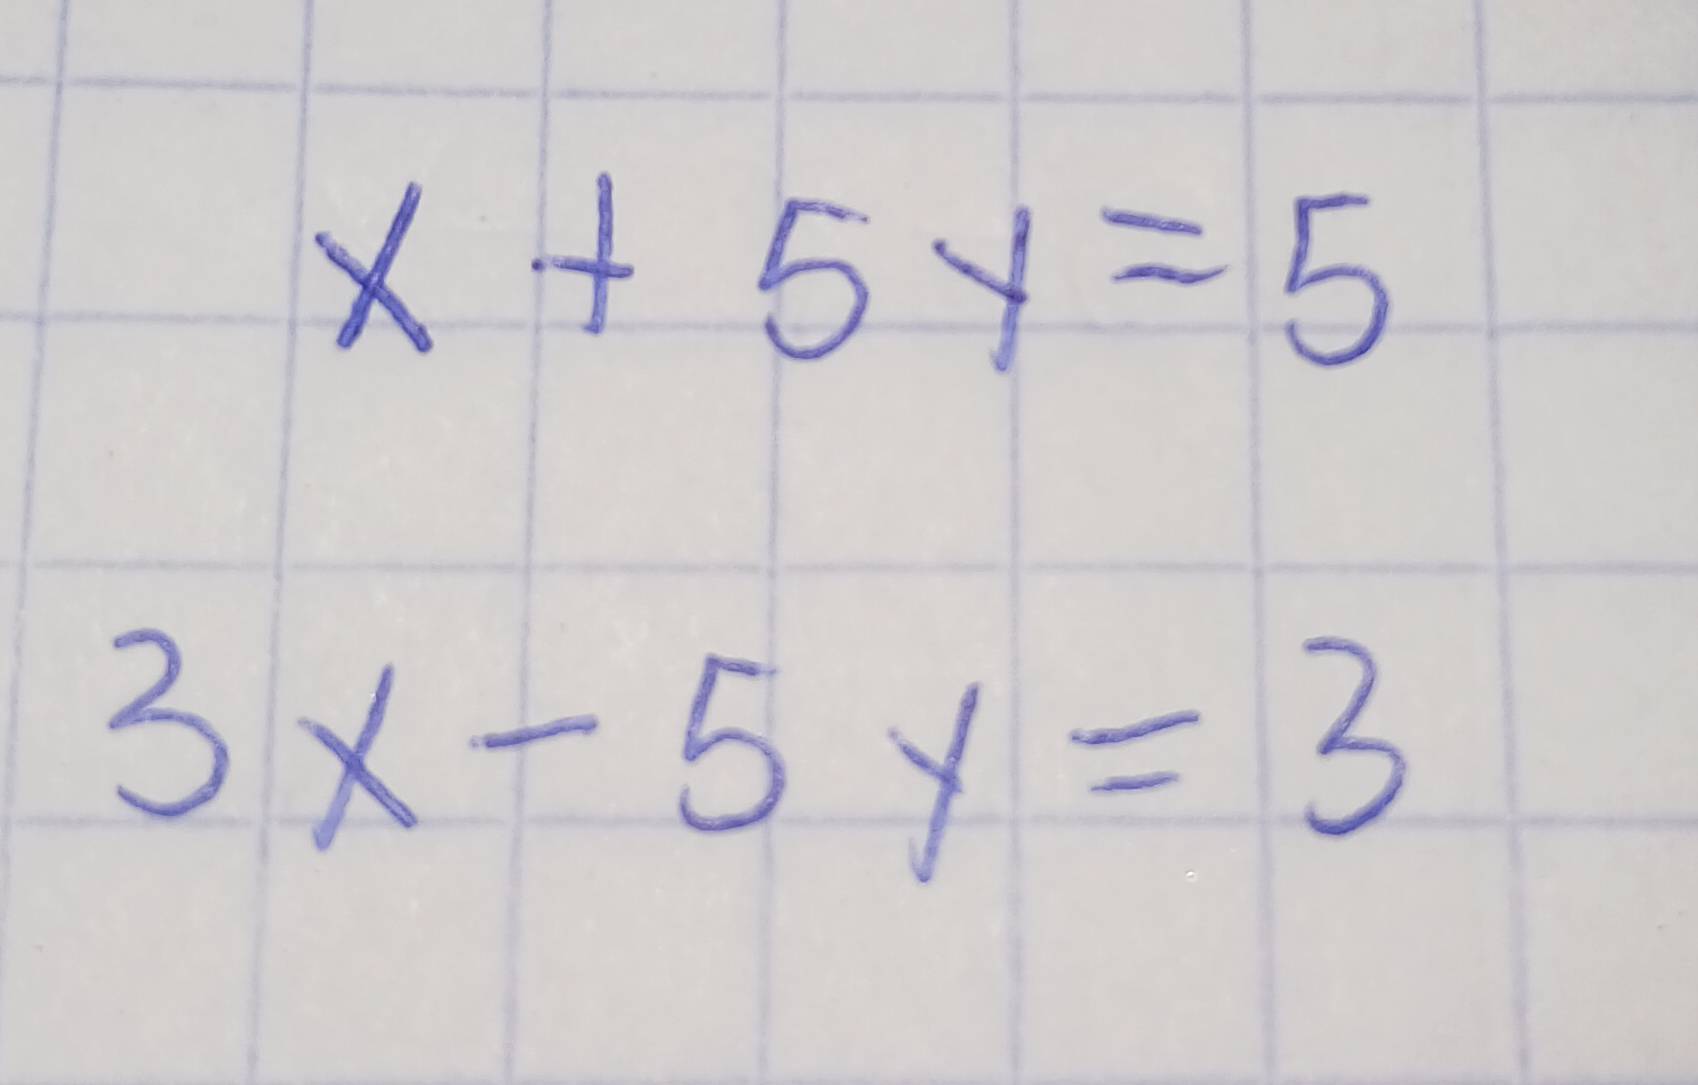 x + 5y = 5
3x - 5y = 3